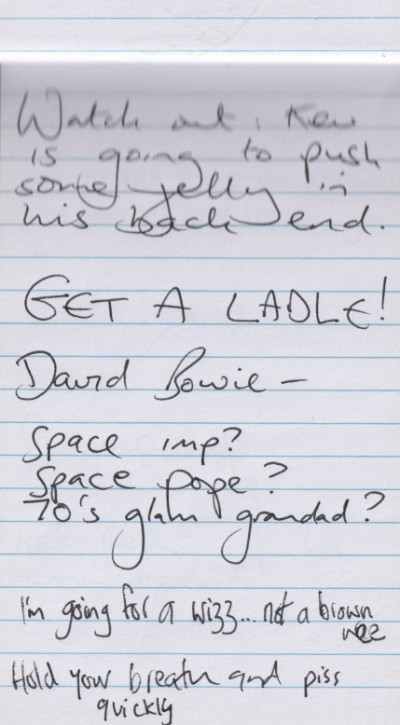 Watch out, Kev
is going to push
some jelly in
his back end.
GET A LADLE!
David Bowie -
Space imp?
Space pope?
70's glam grandad?
I'm going for a wizz... not a brown
wee
Hold your breath and piss
quickly